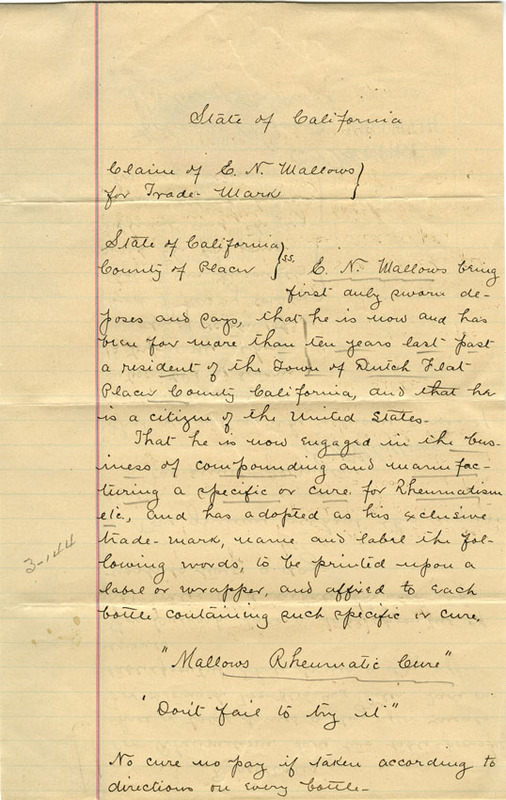 State of California
Claim of E. N. Mallows }
for Trade-Mark
State of California }
County of Placer } ss. E. N. Mallows being
first duly sworn de-
poses and says, that he is now and has
been for more than ten years last past
a resident of the Town of Dutch Flat
Placer County California, and that he
is a citizen of the United States.
That he is now engaged in the bus-
iness of compounding and manufac-
turing a specific or cure for Rheumatism
etc., and has adopted as his exclusive
trade-mark, name and label the fol-
lowing words, to be printed upon a
label or wrapper, and affixed to each
bottle containing such specific or cure.
3-144
"Mallows Rheumatic Cure"
"Don't fail to try it"
No cure no pay if taken according to
directions on every bottle-